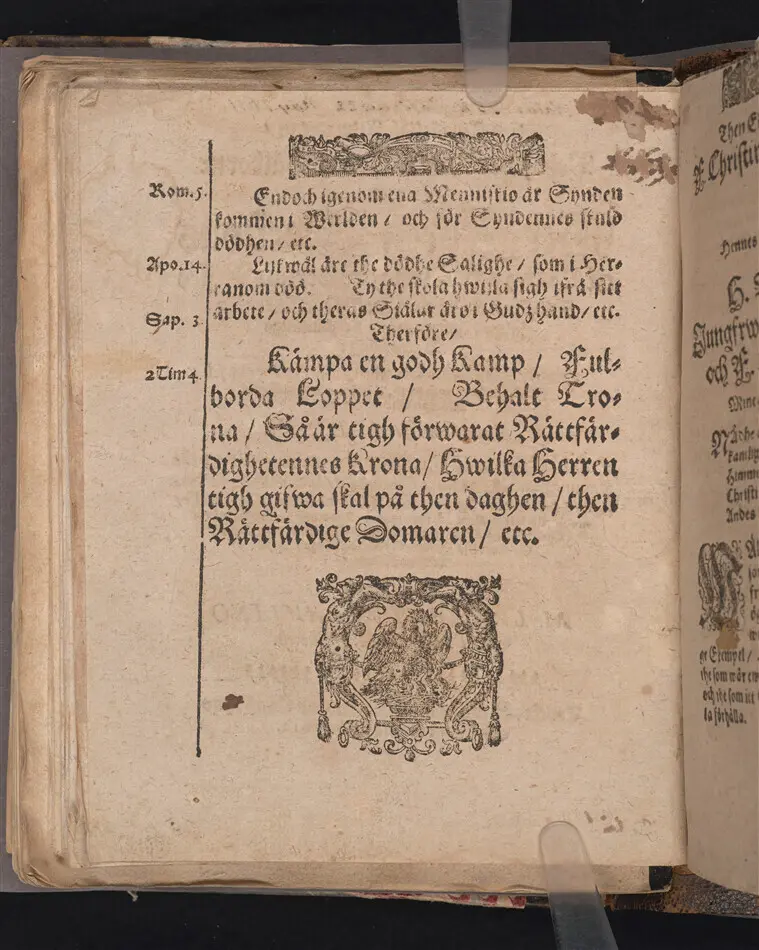 Rom. 5.
Endoch igenom ena Mennistio är Synden
kommen i Werlden / och för Syndennes skuld
dödhen / etc.
Apo. 14.
Lijkwäl äre the dödhe Salighe / som i Her-
ranom döö. Ty the skola hwijla sigh ifrå sitt
Sap. 3
arbete / och theras Siälar äro i Gudz hand / etc.
Therföre /
2 Tim 4.
Kämpa en godh Kamp / Ful-
borda Loppet / Behalt Tro-
na / Så är tigh förwarat Rättfär-
dighetennes Krona / Hwilka Herren
tigh gifwa skal på then daghen / then
Rättfärdige Domaren / etc.
Then
Christin
Hennes
H.
Jungfrw
och F.
Himm
Christi
Andes
Exempel /
the som
och the som
la förhålla.